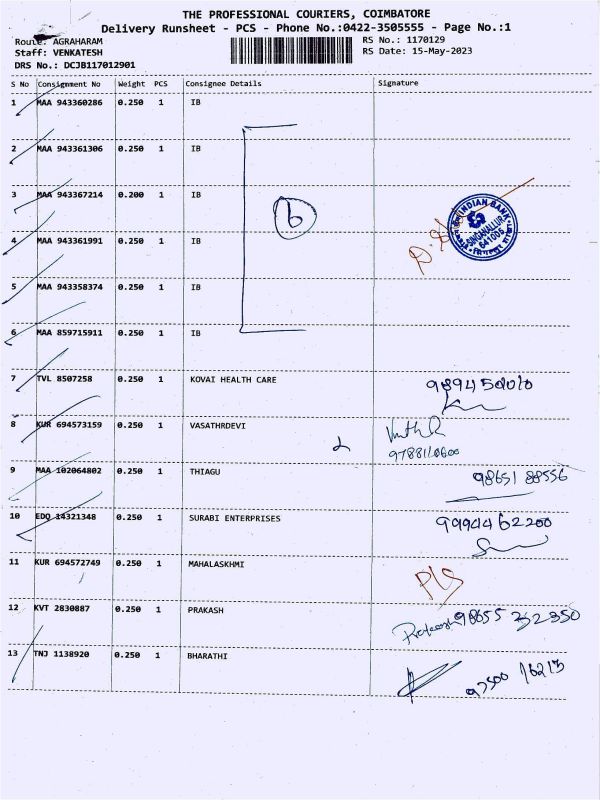 THE PROFESSIONAL COURIERS, COIMBATORE
Delivery Runsheet - PCS - Phone No.:0422-3505555 - Page No.:1
Route: AGRAHARAM
RS No.: 1170129
Staff: VENKATESH
RS Date: 15-May-2023
DRS No.: DCJB117012901
S No Consignment No Weight PCS Consignee Details Signature
1 MAA 943360286 0.250 1 IB
2 MAA 943361306 0.250 1 IB
3 MAA 943367214 0.200 1 IB
6
INDIAN BANK
SINGANALLUR
641005
4 MAA 943361991 0.250 1 IB
5 MAA 943358374 0.250 1 IB
6 MAA 859715911 0.250 1 IB
7 TVL 8507258 0.250 1 KOVAI HEALTH CARE 9894501010
8 KUR 694573159 0.250 1 VASATHRDEVI
9788110600
9 MAA 102064802 0.250 1 THIAGU 98651 88556
10 EDQ 14321348 0.250 1 SURABI ENTERPRISES 9994462200
11 KUR 694572749 1 0.250 1 MAHALASKHMI
12 KVT 2830887 0.250 1 PRAKASH Prakash 98655 32350
13 TNJ 1138920 0.250 1 BHARATHI 97500 16213